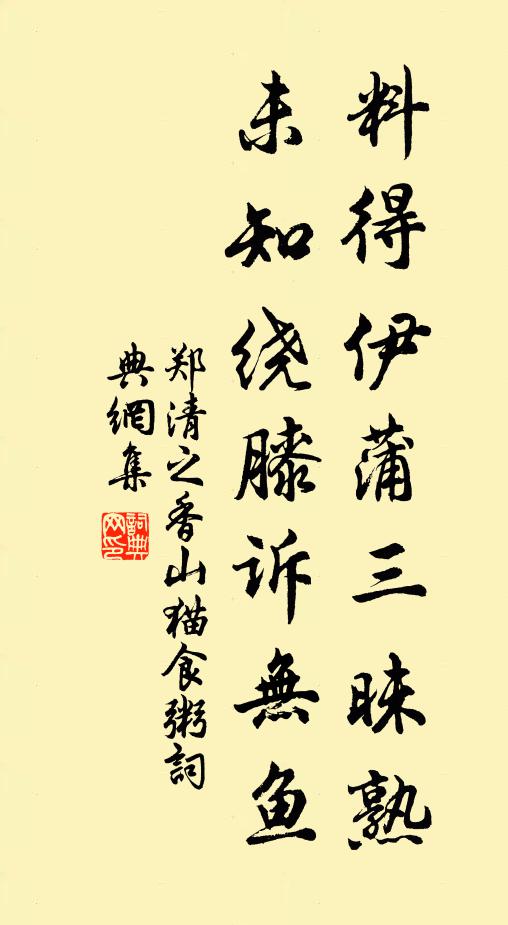 料得伊蒲三昧熟
未知绕膝诉無鱼
郑清之香山猫食粥詞
典網集
詞典
网印